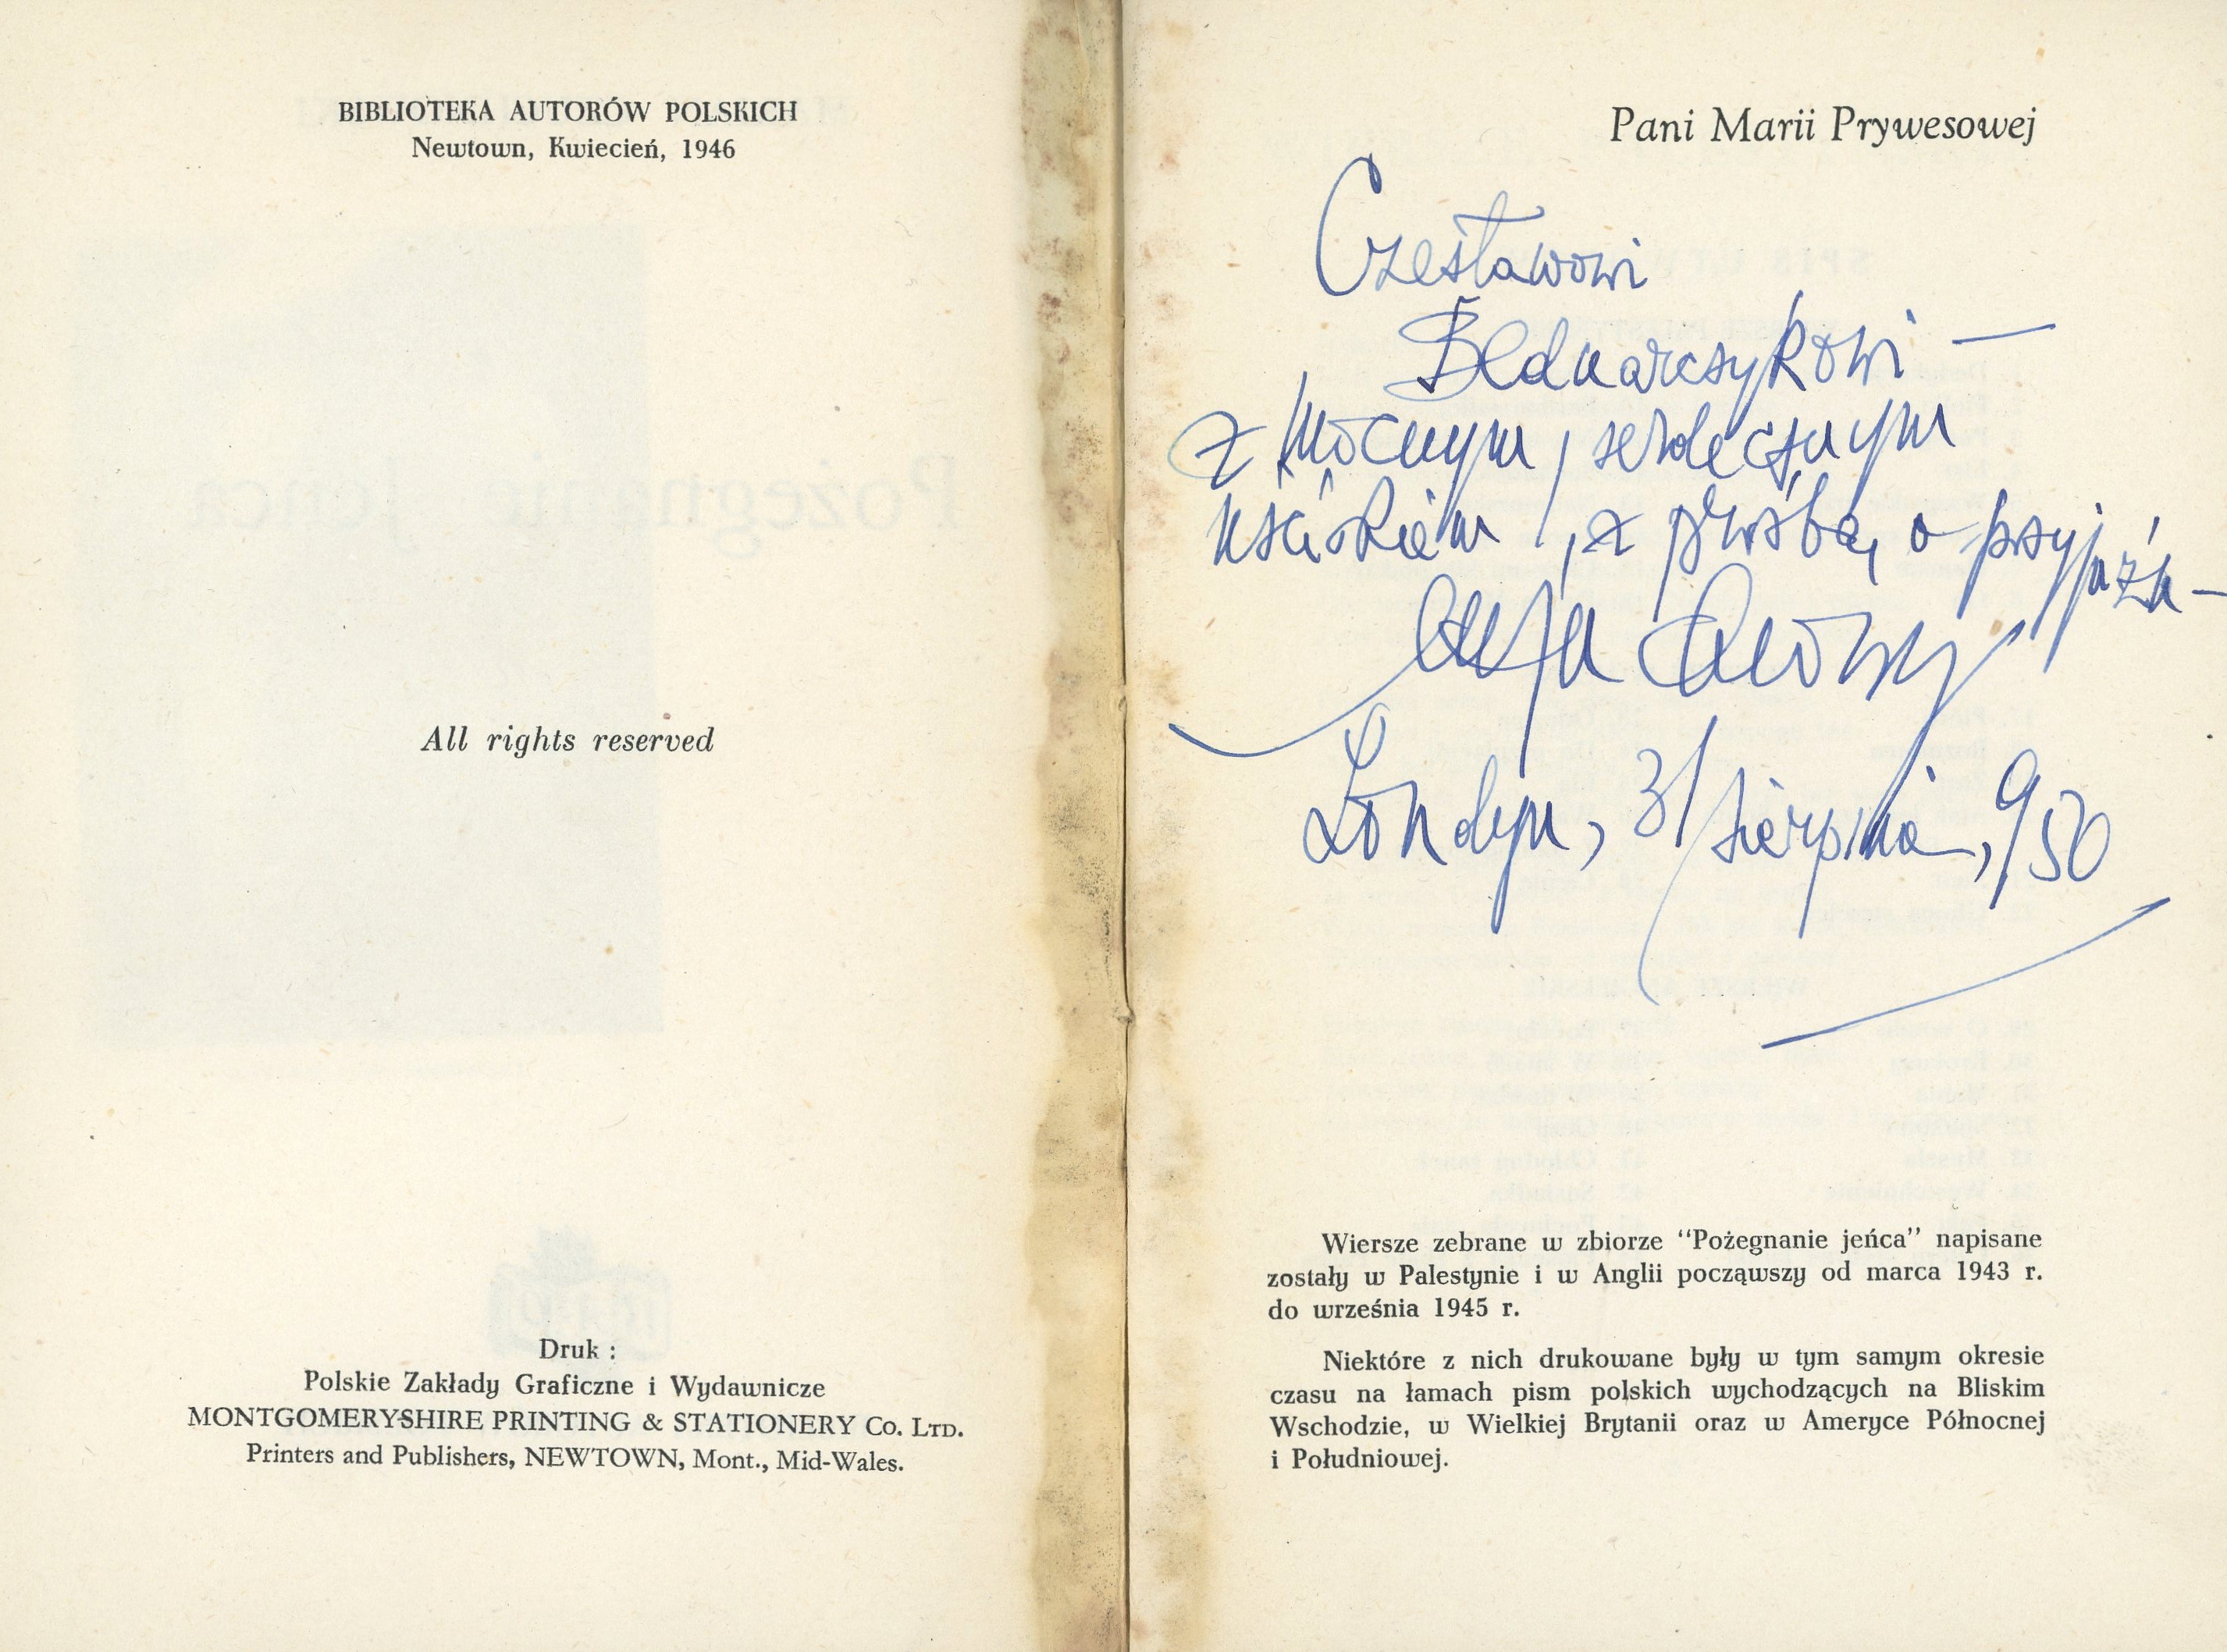 BIBLIOTEKA AUTORÓW POLSKICH
Newtown, Kwiecień, 1946
All rights reserved
Druk :
Polskie Zakłady Graficzne i Wydawnicze
MONTGOMERYSHIRE PRINTING & STATIONERY Co. LTD.
Printers and Publishers, NEWTOWN, Mont., Mid-Wales.
Pani Marii Prywesowej
Czesławowi
Bednarczykowi —
z mocnym, serdecznym
uściskiem, z prośbą o przyjaźń —
Londyn, 31 sierpnia, 950
Wiersze zebrane w zbiorze "Pożegnanie jeńca" napisane
zostały w Palestynie i w Anglii począwszy od marca 1943 r.
do września 1945 r.
Niektóre z nich drukowane były w tym samym okresie
czasu na łamach pism polskich wychodzących na Bliskim
Wschodzie, w Wielkiej Brytanii oraz w Ameryce Północnej
i Południowej.